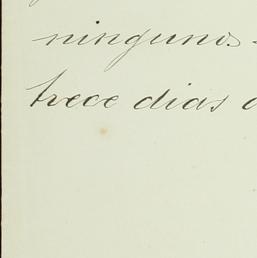 ningunos -
trece dias